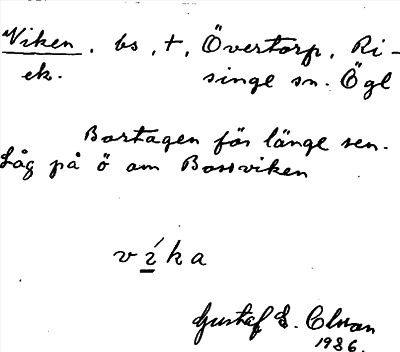 Viken, bs, †, Övertorp, Ri-
ek. singe sn. Ögl
Bortagen för länge sen.
Låg på ö om Bossviken
víka
Gustaf E.
1936.